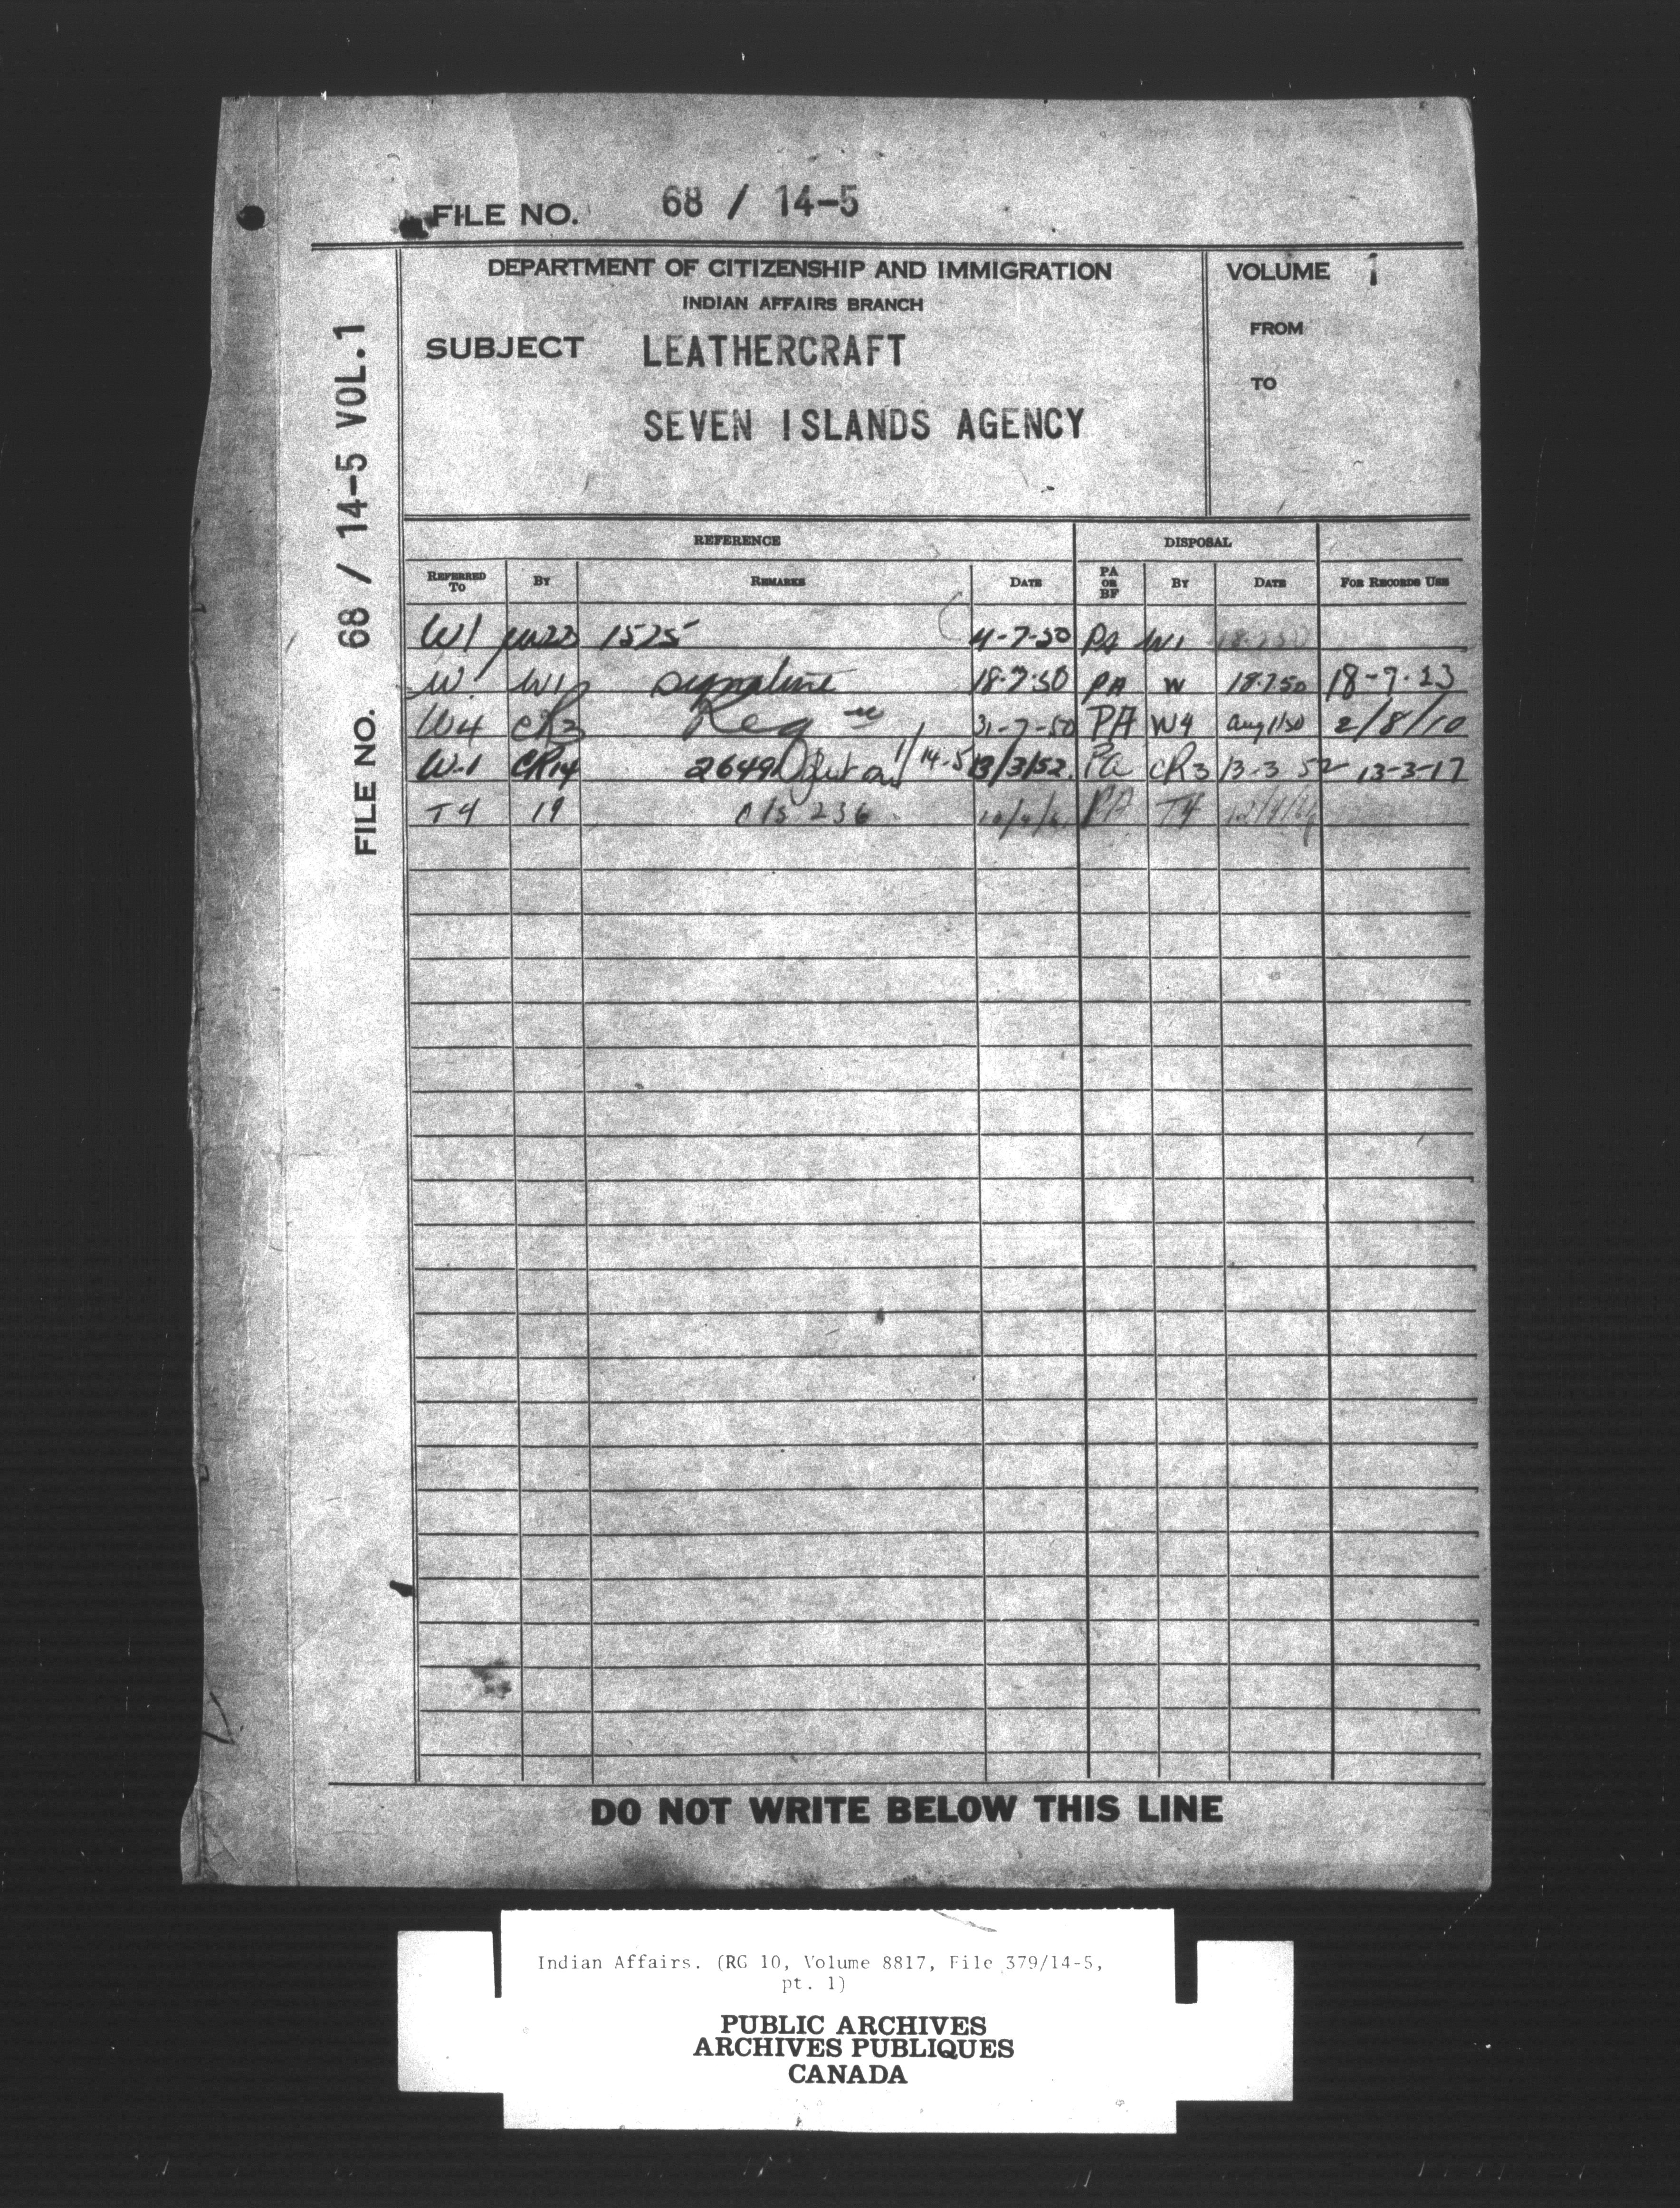 FILE NO. 68 / 14-5
DEPARTMENT OF CITIZENSHIP AND IMMIGRATION
INDIAN AFFAIRS BRANCH
SUBJECT LEATHERCRAFT
SEVEN ISLANDS AGENCY
VOLUME 1
FROM
TO
FILE NO. 68 / 14-5 VOL.1
REFERENCE DISPOSAL
REFERRED TO BY REMARKS DATE PA OR BF BY DATE FOR RECORDS USE
W1 1525 4-7-50 PA W1 18.7.50
W1 W1 Signature 18-7-50 PA W 18.7.50 18-7-23
W4 CR3 Reqn 31-7-50 PA W4 Aug 1/50 2/8/10
W.1 CR14 2649 put on 1/14-5 13/3/52. Pa CR3 13-3 52 13-3-17
T4 19 C/S 236 PA T4
DO NOT WRITE BELOW THIS LINE
Indian Affairs. (RG 10, Volume 8817, File 379/14-5,
pt. 1)
PUBLIC ARCHIVES
ARCHIVES PUBLIQUES
CANADA